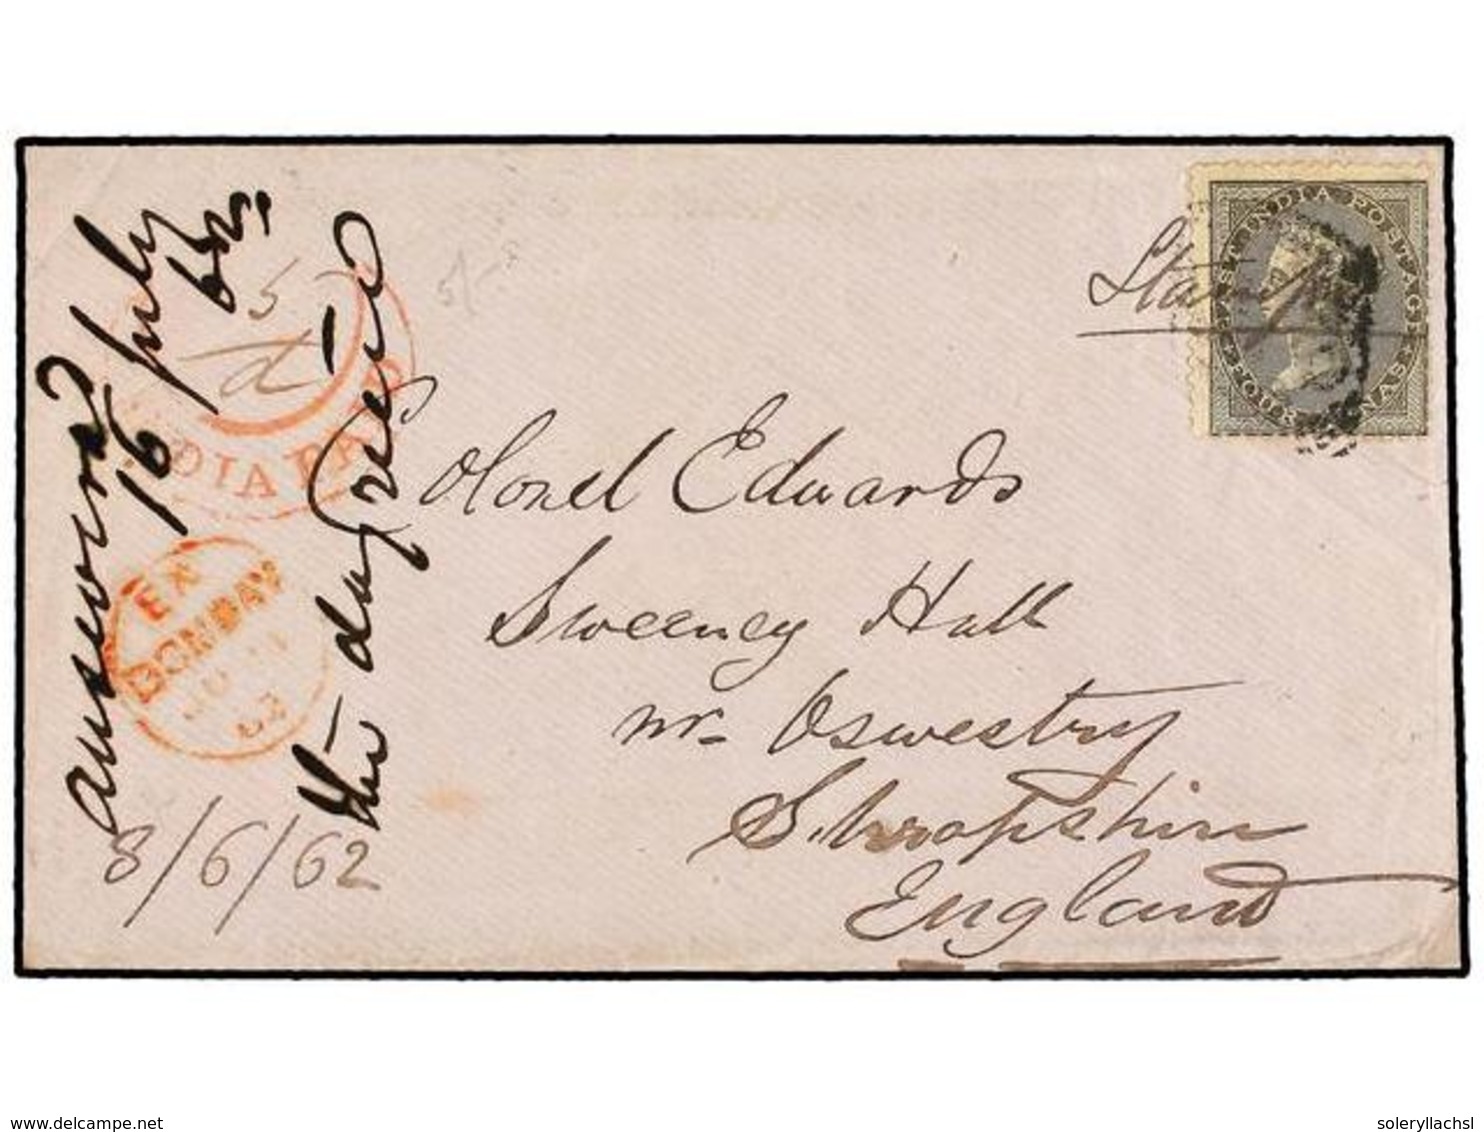 answered
16 July
62
the day recd
5
d
INDIA PAID
Ex
BOMBAY
8/6/62
5/-
Stamp
EAST INDIA POSTAGE
FOUR ANNAS
Colonel Edwards
Sweeney Hall
nr. Oswestry
Shropshire
England
delcampe.net
soleryllachsl